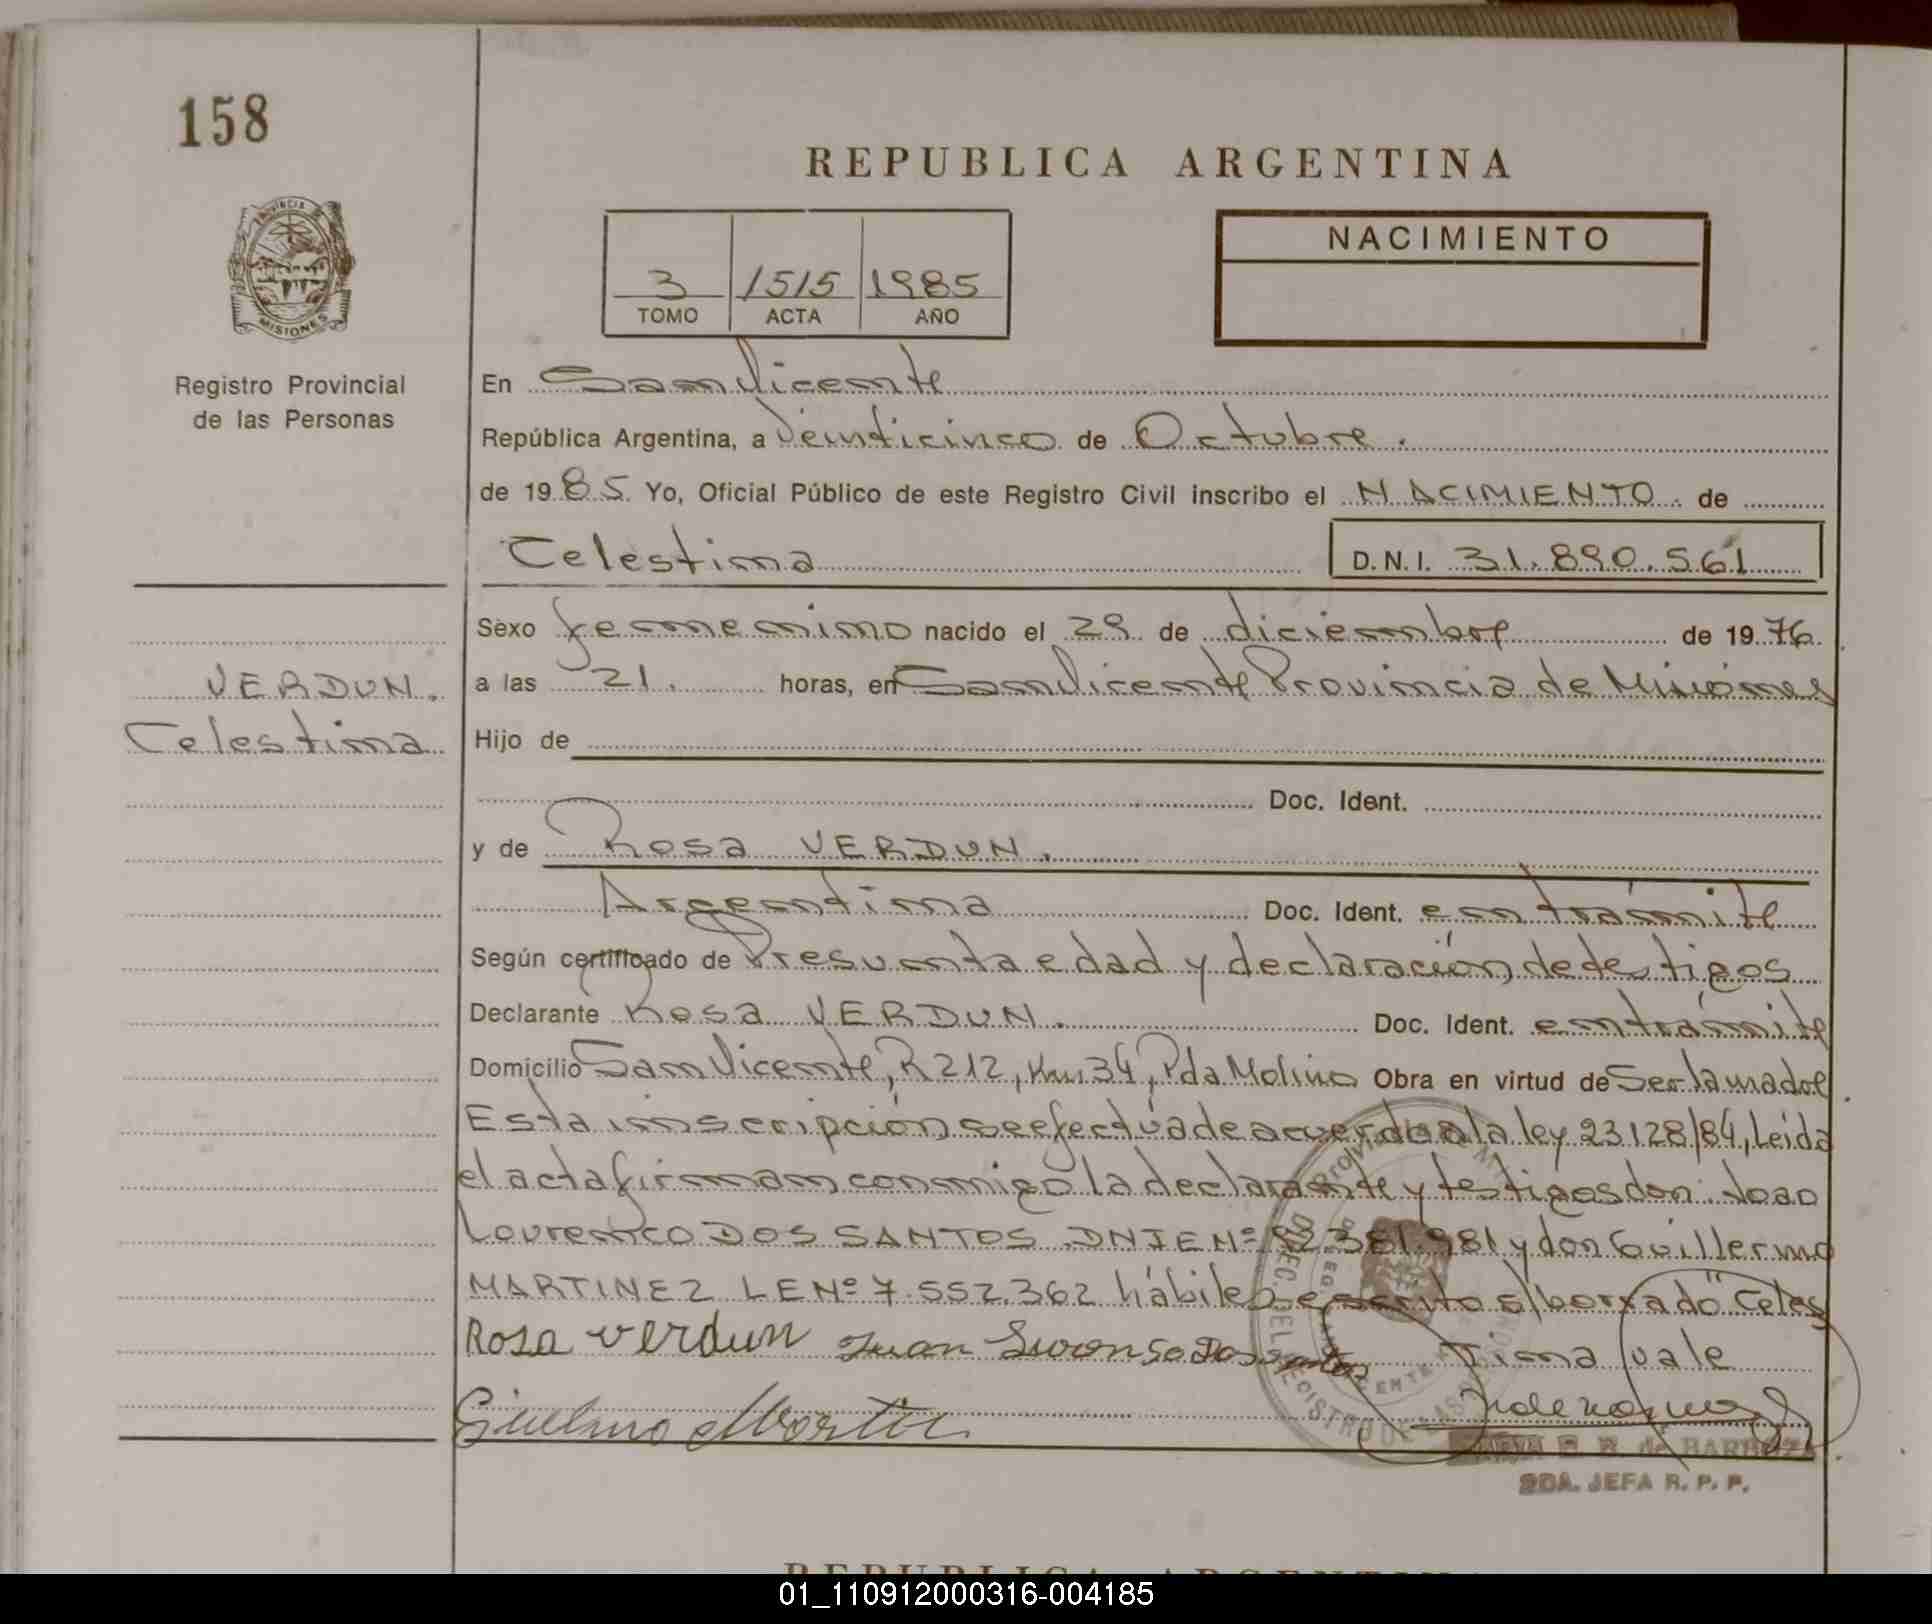 158
REPUBLICA ARGENTINA
PROVINCIA
MISIONES
Registro Provincial
de las Personas
3 1515 1985
TOMO ACTA AÑO
NACIMIENTO
En San Vicente
República Argentina, a Veinticinco de Octubre.
de 1985. Yo, Oficial Público de este Registro Civil inscribo el NACIMIENTO. de
Celestina D.N.I. 31.890.561
Sexo femenino nacido el 29 de diciembre de 1976
VERDUN. a las 21. horas, en San Vicente Provincia de Misiones
Celestina Hijo de
Doc. Ident.
y de Rosa VERDUN.
Argentina Doc. Ident. en trámite
Según certificado de Presunta edad y declaración de testigos
Declarante Rosa VERDUN. Doc. Ident. en trámite
Domicilio San Vicente, R 212, Km 34, Pda Molino Obra en virtud de Ser la madre
Esta inscripción se efectúa de acuerdo a la ley 23.128/84, Leida
el acta firman conmigo la declarante y testigos don: Joao
Lourenco DOS SANTOS DNIE Nº 92.381.981 y don Guillermo
MARTINEZ LE Nº 7.552.362 hábiles escrito s/borrado "Celes
Rosa verdun Juan tina vale
de BARBOZA
2DA. JEFA R. P. P.
REPUBLICA ARGENTINA
01_110912000316-004185